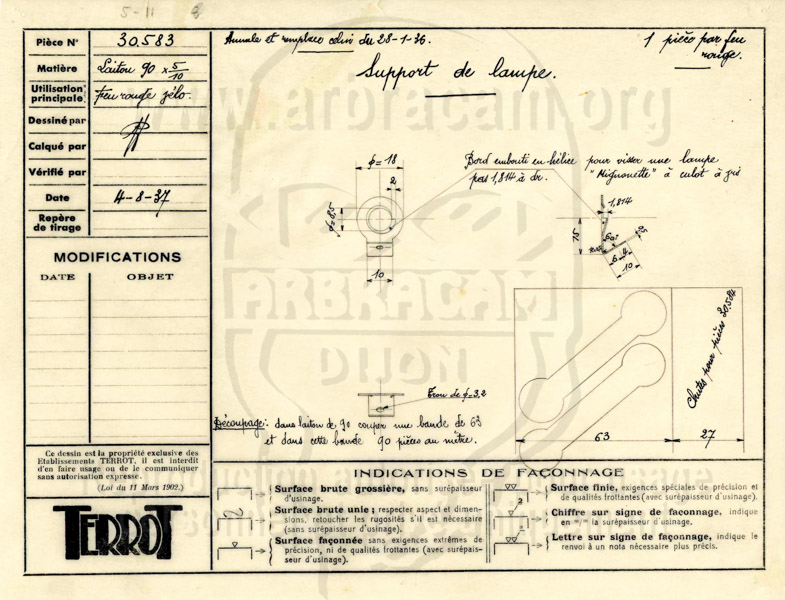 5-11 8
Pièce N° 30.583
Matière Laiton 90 x 5/10
Utilisation principale Feu rouge vélo.
Dessiné par
Calqué par
Vérifié par
Date 4-8-37
Repère de tirage
MODIFICATIONS
DATE OBJET
Ce dessin est la propriété exclusive des
Etablissements TERROT, il est interdit
d'en faire usage ou de le communiquer
sans autorisation expresse.
(Loi du 11 Mars 1902.)
TERROT
Annule et remplace celui du 28-1-36.
1 pièce par feu
rouge.
Support de lampe.
www.arbracam.org
φ = 18
2
φ = 8,5
10
Bord embouti en hélice pour visser une lampe
pas 1,814 à dr. "Mignonette" à culot à vis
1,814
15
6 4
10
ARBRACAM
DIJON
Trou de φ = 3,2
Découpage: dans laiton de 90 couper une bande de 63
et dans cette bande 90 pièces au mètre.
63
27
Chutes pour pièces 30.584
INDICATIONS DE FAÇONNAGE
Surface brute grossière, sans surépaisseur
d'usinage.
Surface brute unie; respecter aspect et dimen-
sions, retoucher les rugosités s'il est nécessaire
(sans surépaisseur d'usinage).
Surface façonnée sans exigences extrêmes de
précision, ni de qualités frottantes (avec surépais-
seur d'usinage).
Surface finie, exigences spéciales de précision et
de qualités frottantes (avec surépaisseur d'usinage).
2
Chiffre sur signe de façonnage, indique
en m/m la surépaisseur d'usinage.
Lettre sur signe de façonnage, indique le
renvoi à un nota nécessaire plus précis.